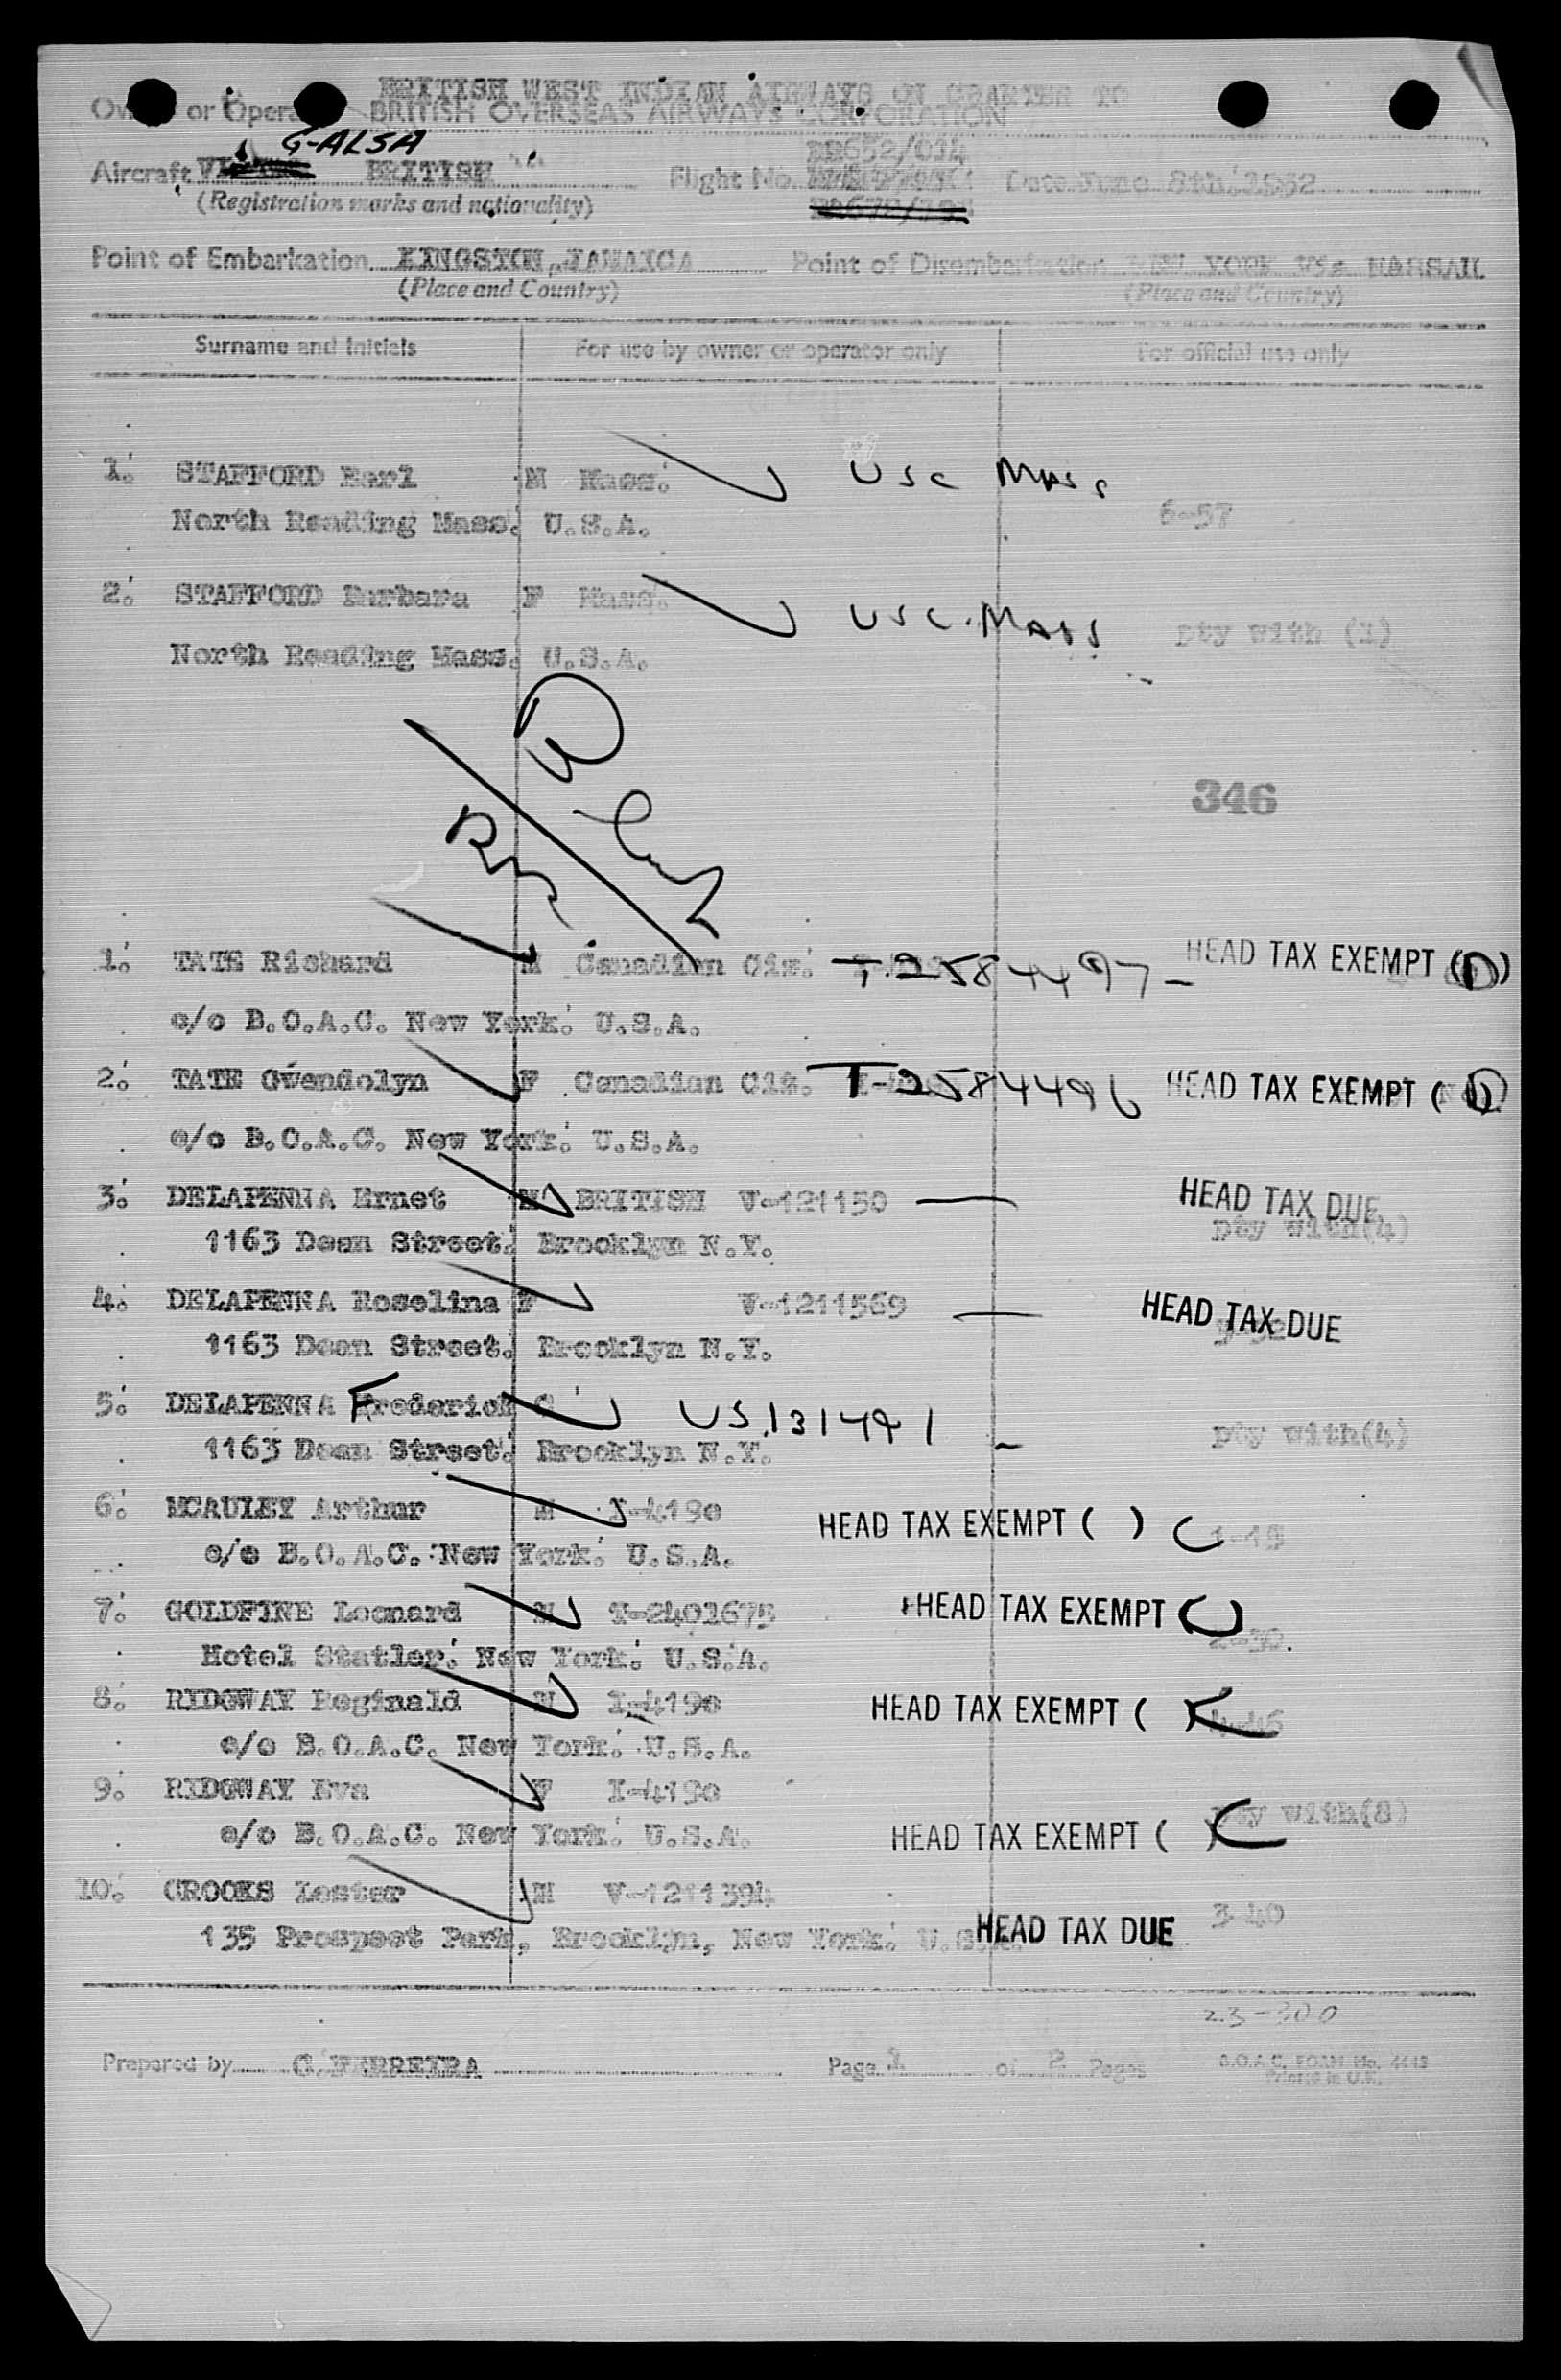 BRITISH WEST INDIAN AIRWAYS ON CHARTER TO
or Opera BRITISH OVERSEAS AIRWAYS CORPORATION
G-ALSA
BR652/014
Aircraft BRITISH Flight No. Date June 8th.1952
(Registration marks and nationality)
Point of Embarkation KINGSTON, JAMAICA Point of Disembarkation NEW YORK VIA NASSAU.
(Place and Country) (Place and Country)
Surname and Initials For use by owner or operator only For official use only
1. STAFFORD Earl M Mass. USC MASS
North Reading Mass. U.S.A. 6-57
2. STAFFORD Barbara F Mass. USC. MASS
North Reading Mass. U.S.A. pty with (1)
346
1. TATE Richard M Canadian Ciz. T-2584497 - HEAD TAX EXEMPT (D)
c/o B.O.A.C. New York. U.S.A.
2. TATE Gwendolyn F Canadian Cit. T-2584496 HEAD TAX EXEMPT (D)
c/o B.O.A.C. New York. U.S.A.
3. DELAPENNA Ernet M BRITISH V-121150 — HEAD TAX DUE
pty with(4)
1163 Dean Street. Brooklyn N.Y.
4. DELAPENNA Roselina F V-1211569 — HEAD TAX DUE
1163 Dean Street. Brooklyn N.Y.
5. DELAPENNA Frederick C US.131491 -
1163 Dean Street. Brooklyn N.Y. pty with(4)
6. MCAULEY Arthur M I-4190 HEAD TAX EXEMPT ( ) C 1-19
c/o B.O.A.C. New York. U.S.A.
7. GOLDFINE Leonard M T-2401675 HEAD TAX EXEMPT (C)
2-30.
Hotel Statler. New York. U.S.A.
8. RIDGWAY Reginald M I-4190 HEAD TAX EXEMPT ( ) C
c/o B.O.A.C. New York. U.S.A.
9. RIDGWAY Eva F I-4190
pty with(8)
c/o B.O.A.C. New York. U.S.A. HEAD TAX EXEMPT ( ) C
10. CROOKS Lester M V-1211394
135 Prospect Park, Brooklyn, New York. U.S.A. HEAD TAX DUE 3-40
23-300
Prepared by G. FERREIRA Page 1 of 2 Pages B.O.A.C. FORM No. 4443
Printed in U.K.